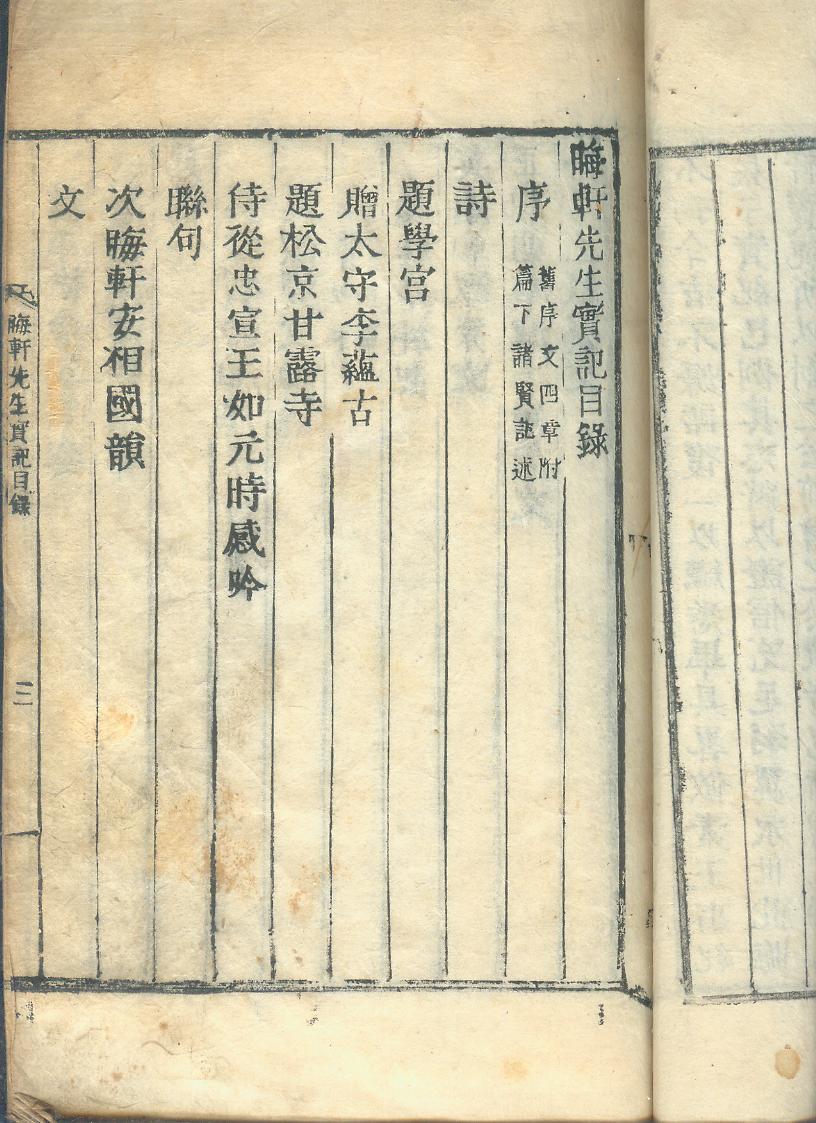 晦軒先生實記目錄
序 舊序文四章附
篇下諸賢記述
詩
題學宮
贈太守李蘊古
題松京甘露寺
侍從忠宣王如元時感吟
聯句
次晦軒安相國韻
文
晦軒先生實記目錄
三